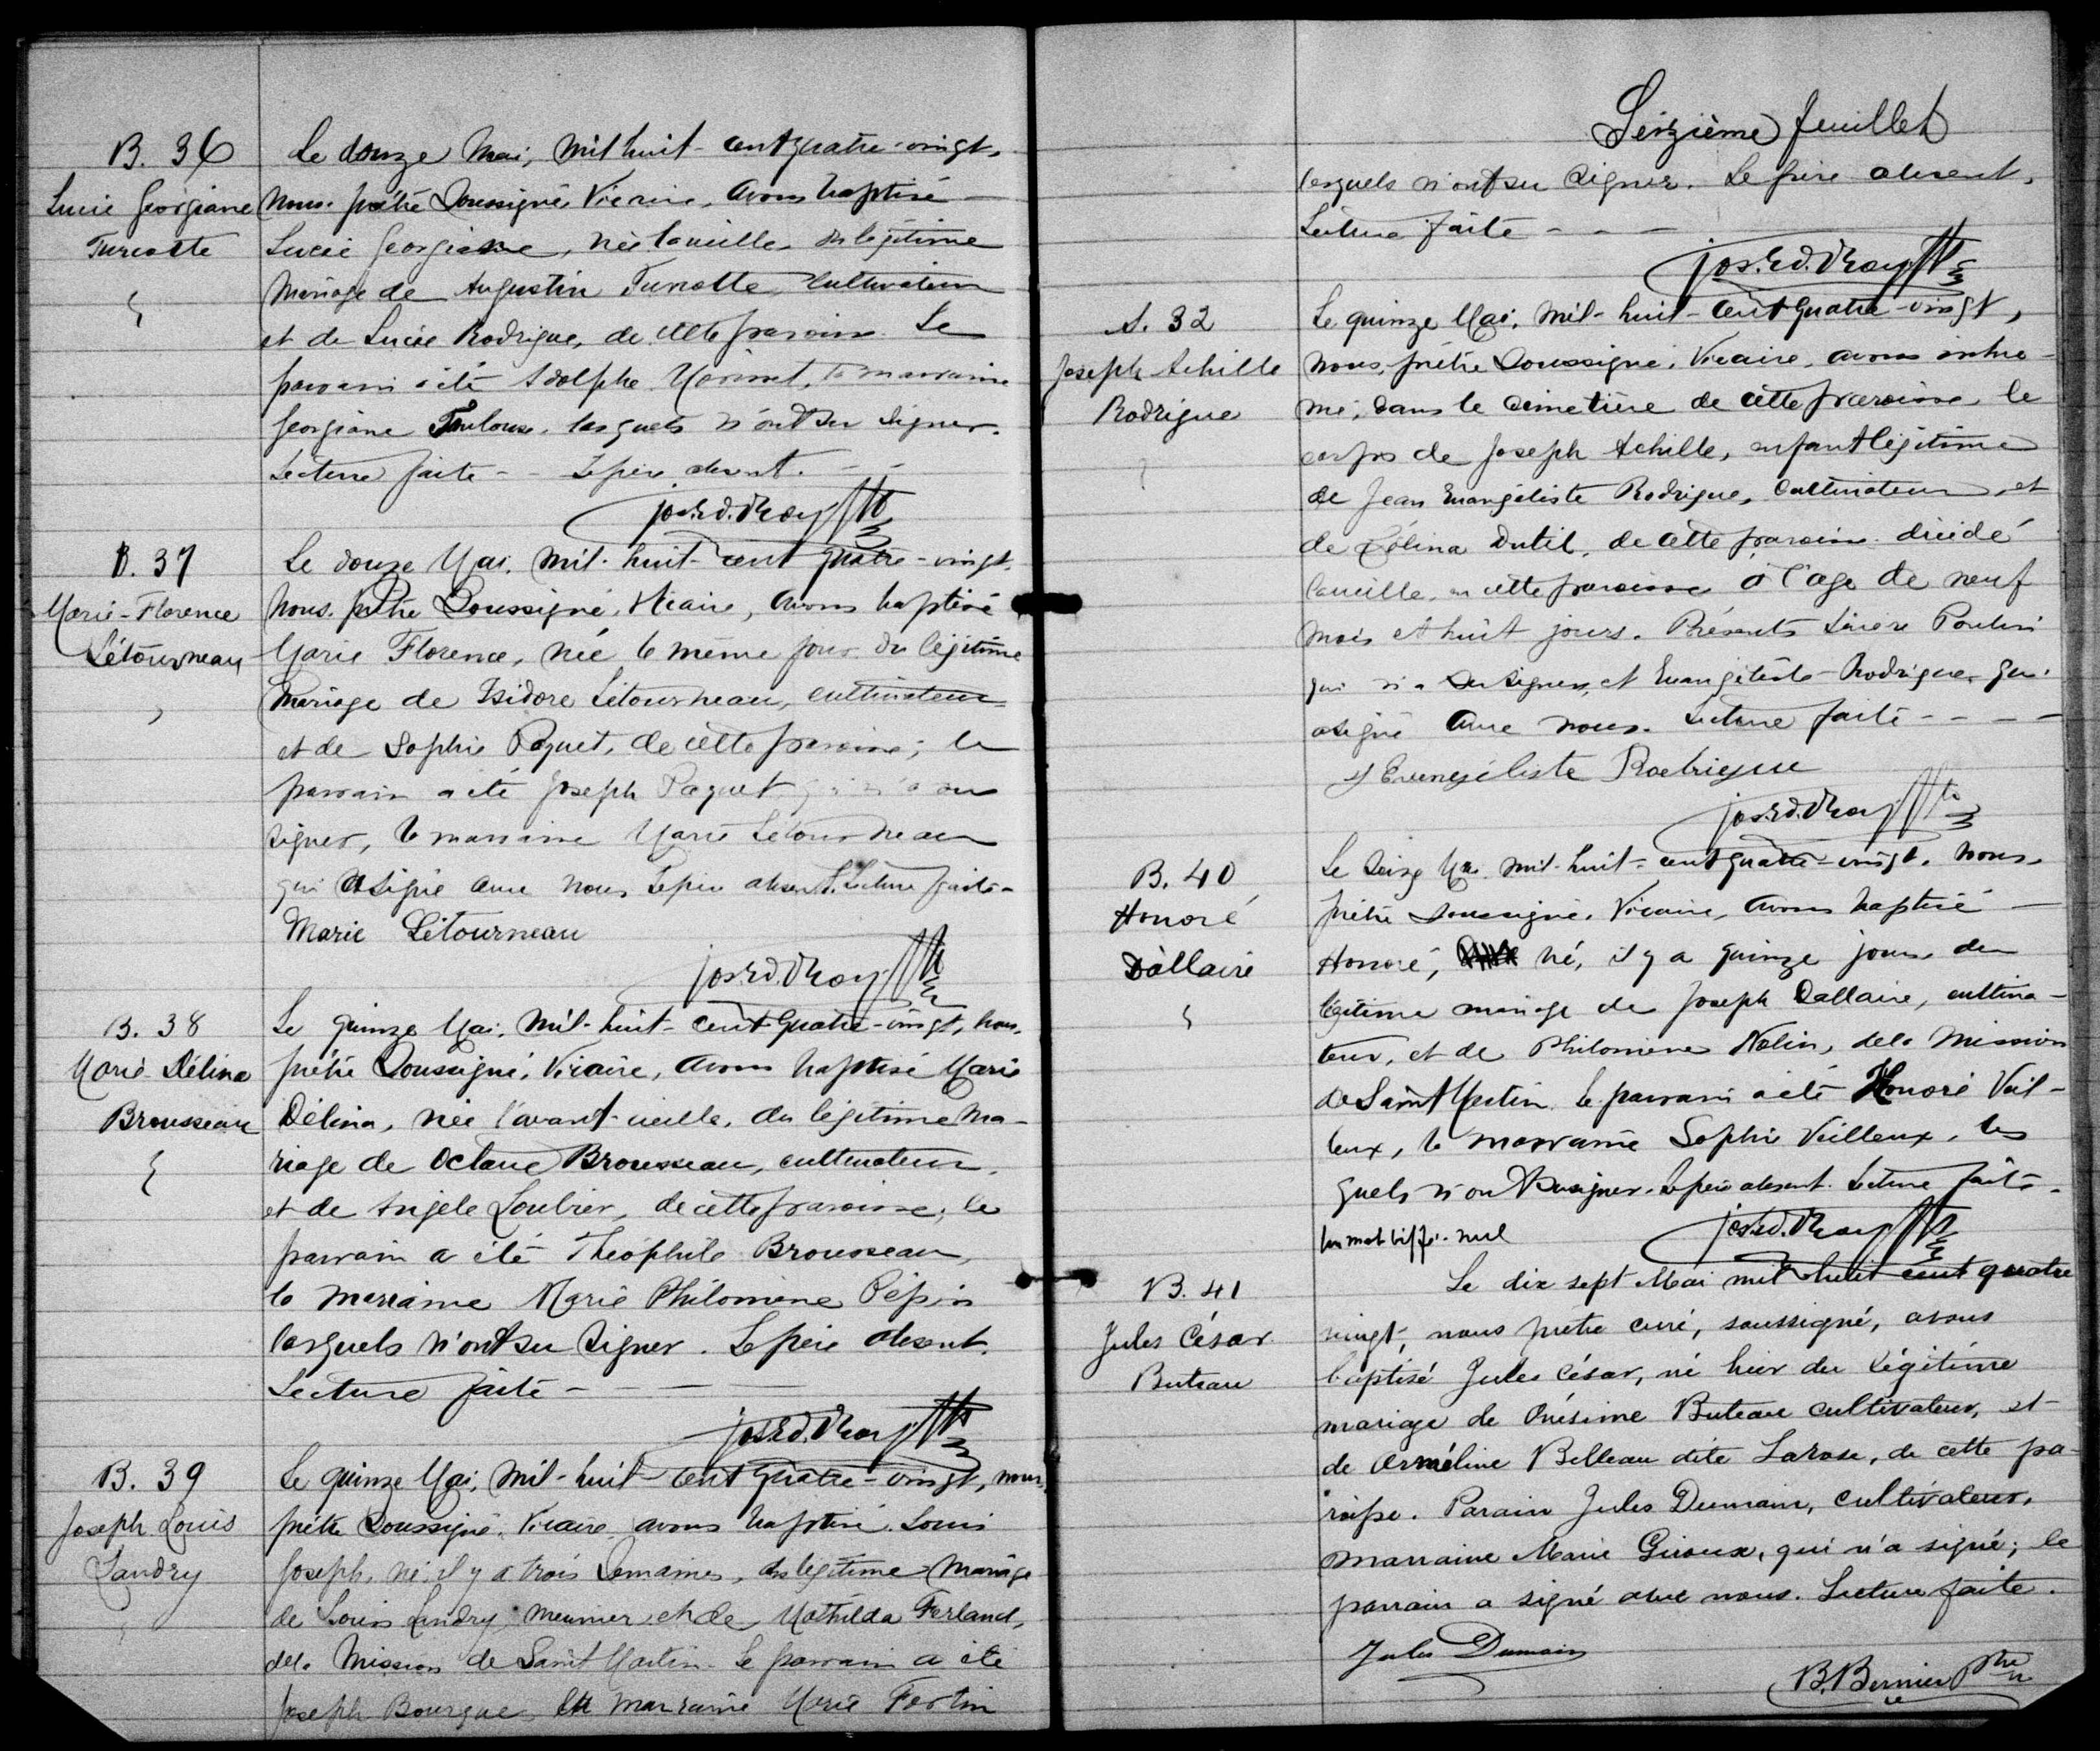 B. 36
Lucie Georgiane
Turcotte
Le douze Mai, mil huit-cent quatre-vingt,
nous prêtre soussigné, Vicaire, avons baptisé
Lucie Georgiane, née la veille du légitime
mariage de Augustin Turcotte, cultivateur
et de Lucie Rodrigue, de cette paroisse. Le
parrain a été Adolphe Morisset, la marraine
Georgiane Toulouse, lesquels n'ont su signer.
Lecture faite - - Le père absent. - -
Jos. Ed. Roy Ptre
B. 37
Marie-Florence
Létourneau
Le douze Mai, mil-huit-cent quatre-vingt,
nous, prêtre soussigné, Vicaire, avons baptisé
Marie Florence, née le même jour du légitime
mariage de Isidore Létourneau, cultivateur
et de Sophie Paquet, de cette paroisse; le
parrain a été Joseph Paquet qui n'a su
signer, la marraine Marie Létourneau
qui a signé avec nous. Le père absent. Lecture faite-
Marie Létourneau
Jos. Ed. Roy Ptre
B. 38
Marie Délina
Brousseau
Le quinze Mai, mil-huit-cent-quatre-vingt, nous,
prêtre soussigné, Vicaire, avons baptisé Marie
Délina, née l'avant-veille, du légitime ma-
riage de Octave Brousseau, cultivateur,
et de Angèle Loubier, de cette paroisse; le
parrain a été Théophile Brousseau,
la marraine Marie Philomène Pépin
lesquels n'ont su signer. Le père absent.
Lecture faite - - -
Jos. Ed. Roy Ptre
B. 39
Joseph Louis
Landry
Le quinze Mai, mil-huit-cent quatre-vingt, nous,
prêtre soussigné, Vicaire, avons baptisé Louis
Joseph, né il y a trois semaines, du légitime mariage
de Louis Landry, meunier et de Mathilda Ferland,
de la Mission de Saint Martin. Le parrain a été
Joseph Bourque et marraine Marie Fortin
Seizième feuillet
lesquels n'ont su signer. Le père absent.
Lecture faite - - -
Jos. Ed. Roy Ptre
S. 32
Joseph Achille
Rodrigue
Le quinze Mai, mil-huit-cent quatre-vingt,
nous, prêtre soussigné, Vicaire, avons inhu-
mé, dans le cimetière de cette paroisse, le
corps de Joseph Achille, enfant légitime
de Jean Evangéliste Rodrigue, cultivateur, et
de Zélina Dutil, de cette paroisse décidé
la veille, en cette paroisse à l'age de neuf
mois et huit jours. Présents Poulin
qui n'a su signer, et Evangéliste Rodrigue, qui
a signé avec nous. Lecture faite - - - -
Evengéliste Roebrigue
Jos. Ed. Roy Ptre
B. 40
Honoré
Dallaire
Le seize Mai mil-huit-cent quatre-vingt, nous,
prêtre soussigné, Vicaire, avons baptisé
Honoré, né, il y a quinze jours, du
légitime mariage de Joseph Dallaire, cultiva-
teur, et de Philomène Nolin, de la Mission
de Saint Martin. Le parrain a été Honoré Veil-
leux, la marraine Sophie Veilleux, les
quels n'ont su signer. Le père absent. Lecture faite.
Un mot biffé nul
Jos. Ed. Roy Ptre
B. 41
Jules César
Buteau
Le dix sept Mai mil huit cent quatre
vingt, nous prêtre curé, soussigné, avons
baptisé Jules César, né hier du légitime
mariage de Onésime Buteau cultivateur, et
de Arméline Belleau dite Larose, de cette pa-
roisse. Parain Jules Dumain, cultivateur,
marraine Marie Giroux, qui n'a signé; le
parrain a signé avec nous. Lecture faite.
Jules Dumain
B. Bernier Ptre